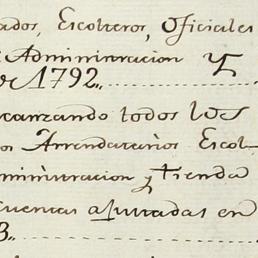 ados, Escolteros, Oficiales
Administracion y
de 1792.
canzando todos los
os Arrendatarios Escol-
ministracion y tienda
cuentas ajustadas en
3.